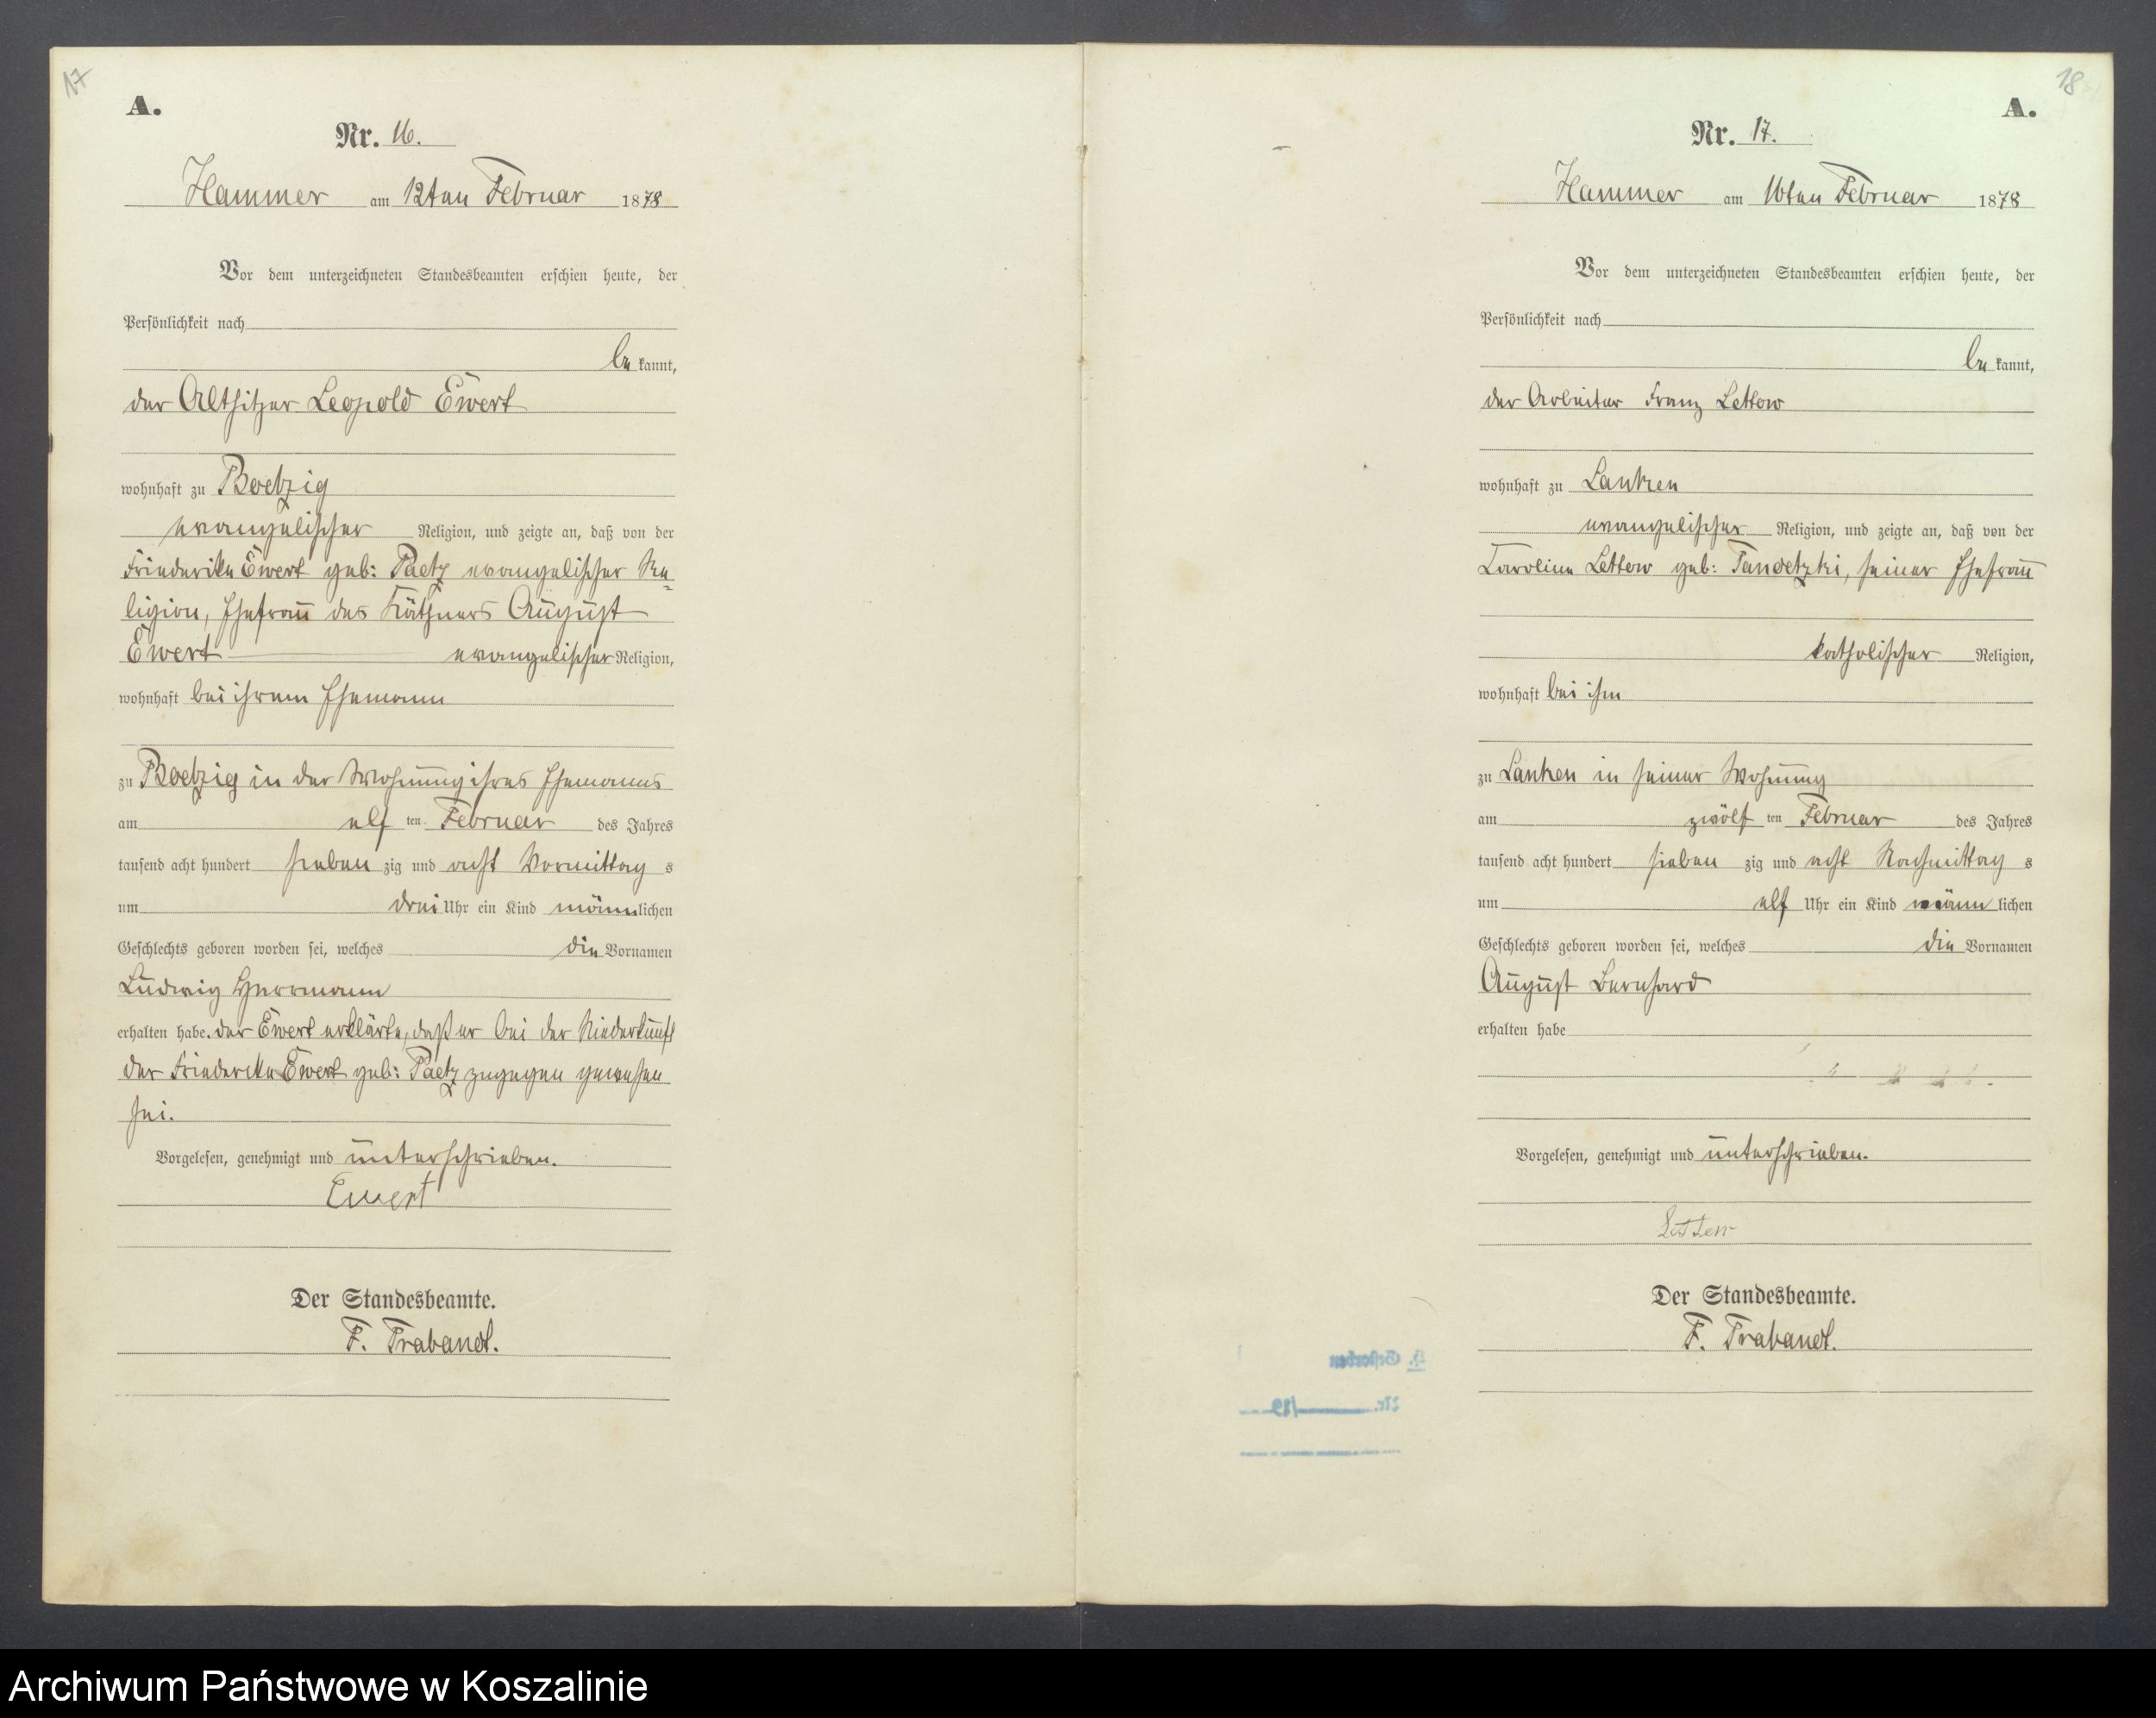 17
A.
Nr. 16.
Hammer am 12ten Februar 1878
Vor dem unterzeichneten Standesbeamten erschien heute, der
Persönlichkeit nach
be kannt,
der Altsitzer Leopold Ewert
wohnhaft zu Boetzig
evangelischer Religion, und zeigte an, daß von der
Friederike Ewert geb: Paetz evangelischer Re-
ligion, Ehefrau des Käthners August
Ewert evangelischer Religion,
wohnhaft bei ihrem Ehemann
zu Boetzig in der Wohnung ihres Ehemanns
am elf ten Februar des Jahres
tausend acht hundert sieben zig und acht Vormittag s
um drei Uhr ein Kind männlichen
Geschlechts geboren worden sei, welches die Vornamen
Ludwig Herrmann
erhalten habe. der Ewert erklärte, daß er bei der Niederkunft
der Friederike Ewert geb: Paetz zugegen gewesen
sei.
Vorgelesen, genehmigt und unterschrieben.
Ewert
Der Standesbeamte.
F. Trabandt.
18
A.
Nr. 17.
Hammer am 16ten Februar 1878
Vor dem unterzeichneten Standesbeamten erschien heute, der
Persönlichkeit nach
be kannt,
der Arbeiter Franz Lettow
wohnhaft zu Lanken
evangelischer Religion, und zeigte an, daß von der
Caroline Lettow geb: Tandetzki, seiner Ehefrau
katholischer Religion,
wohnhaft bei ihm
zu Lanken in seiner Wohnung
am zwölf ten Februar des Jahres
tausend acht hundert sieben zig und acht Nachmittag s
um elf Uhr ein Kind männ lichen
Geschlechts geboren worden sei, welches die Vornamen
August Bernhard
erhalten habe
Vorgelesen, genehmigt und unterschrieben.
Lettow
Der Standesbeamte.
F. Trabandt.
Gestorben
Nr.
Archiwum Państwowe w Koszalinie